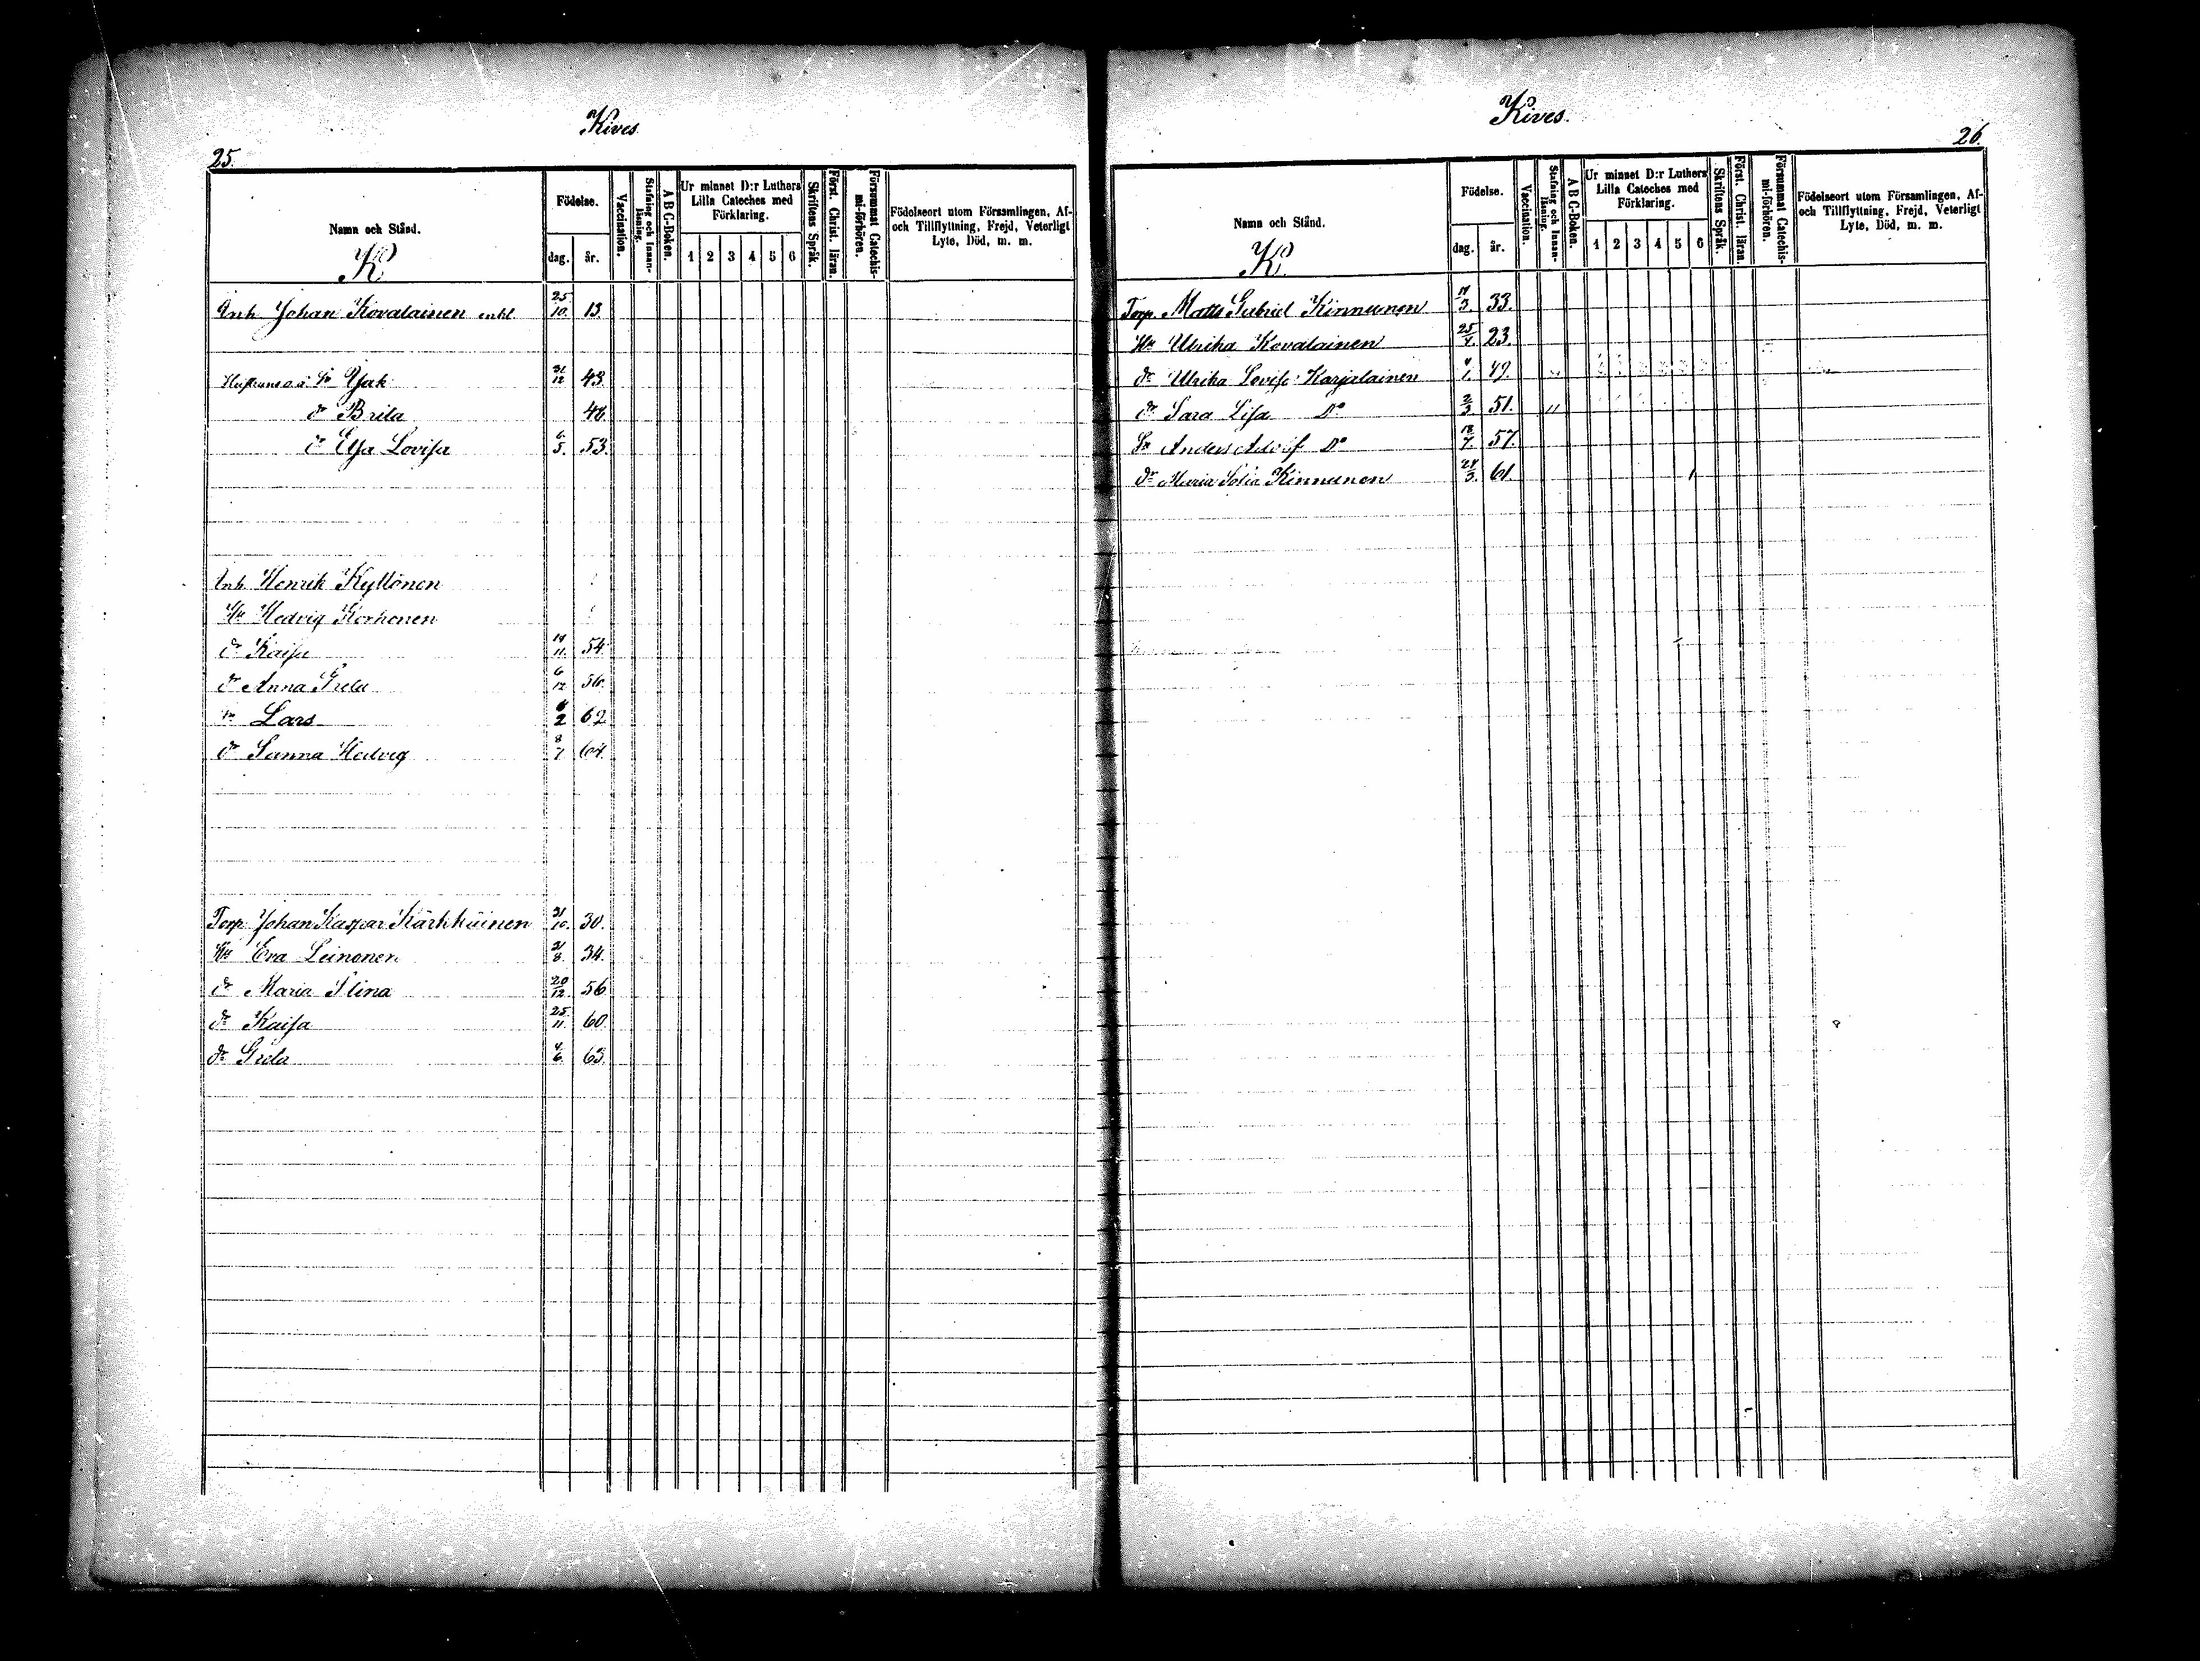 Kives.
25.
Namn och Stånd.
K
Födelse.
dag.
år.
Vaccination.
Stafning och Innan-läsning.
A B C-Boken.
Ur minnet D:r Luthers
Lilla Cateches med
Förklaring.
1 2 3 4 5 6
Skriftens Språk.
Först. Christ. läran.
Försummat Catechis-
mi-förhören.
Födelseort utom Församlingen, Af-
och Tillflyttning, Frejd, Veterligt
Lyte, Död, m. m.
Inh. Johan Kovalainen enkl 25/10. 13
Sn Isak 31/12 43.
dr Brita 46.
dr Elsa Lovisa 6/5. 53.
Inh. Henrik Kyllönen
Hu Hedvig Korhonen
dr Kaisa 14/11. 54.
dr Anna Greta 6/12 56.
Sn Lars 6/2 62
dr Sanna Hedvig 8/7. 64.
Torp. Johan Kaspar Kärkkäinen 21/10. 30.
Hu Eva Leinonen 21/8. 34.
dr Maria Stina 20/12. 56
dr Kaisa 25/11. 60.
dr Greta 4/6. 63.
Kives.
26.
Namn och Stånd.
K
Födelse.
dag.
år.
Vaccination.
Stafning och Innan-läsning.
A B C-Boken.
Ur minnet D:r Luthers
Lilla Cateches med
Förklaring.
1 2 3 4 5 6
Skriftens Språk.
Först. Christ. läran.
Försummat Catechis-
mi-förhören.
Födelseort utom Församlingen, Af-
och Tillflyttning, Frejd, Veterligt
Lyte, Död, m. m.
Torp. Matts Gabriel Kinnunen 33.
Hu Ulrika Kovalainen 23.
dr Ulrika Lovisa Karjalainen 49.
dr Sara Lisa Do 2/3. 51.
Sn Anders Adolf Do 18/7. 57.
dr Maria Sofia Kinnunen 24/3. 61.